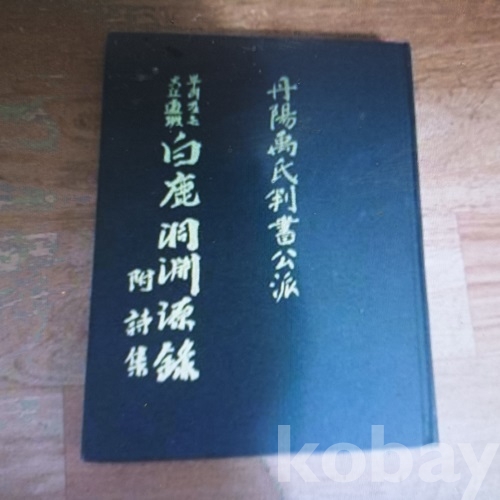 丹陽禹氏判書公派
白鹿洞淵源錄
附詩集
kobay